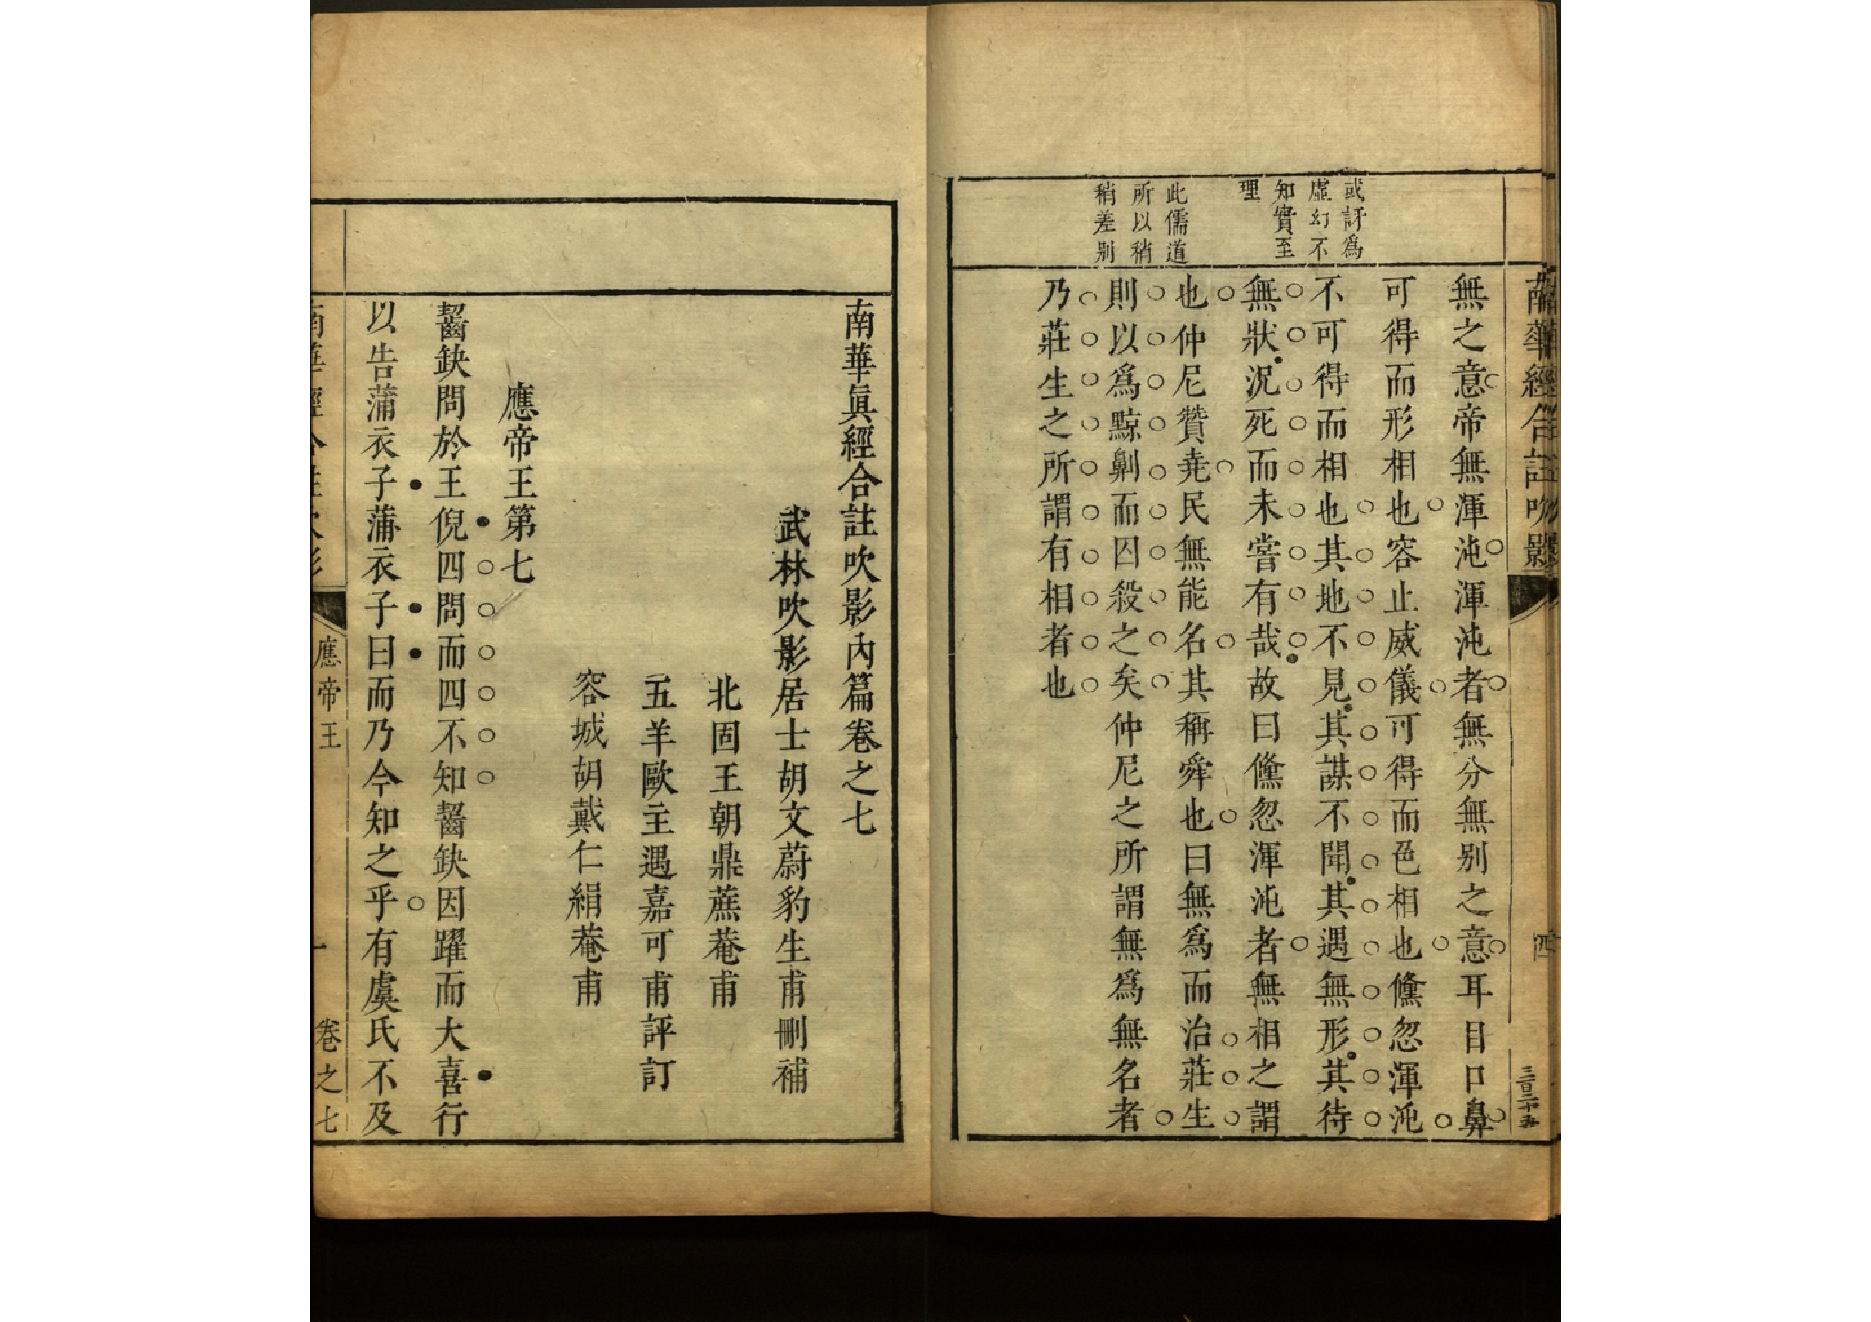 南華經合註吹影
四
三百二十五
或訝為
虛幻不
知實至
理
此儒道
所以稍
稍差別
無之意帝無渾沌渾沌者無分無别之意耳目口鼻
可得而形相也容止威儀可得而色相也儵忽渾沌
不可得而相也其地不見其謀不聞其遇無形其待
無狀況死而未嘗有哉故曰儵忽渾沌者無相之謂
也仲尼贊堯民無能名其稱舜也曰無爲而治莊生
則以爲黥劓而囚殺之矣仲尼之所謂無爲無名者
乃莊生之所謂有相者也
南華眞經合註吹影內篇卷之七
武林吹影居士胡文蔚豹生甫刪補
北固王朝鼎蔗菴甫
五羊歐主遇嘉可甫評訂
容城胡戴仁絹菴甫
應帝王第七
齧缺問於王倪四問而四不知齧缺因躍而大喜行
以告蒲衣子蒲衣子曰而乃今知之乎有虞氏不及
南華經合註吹影
應帝王
一
卷之七